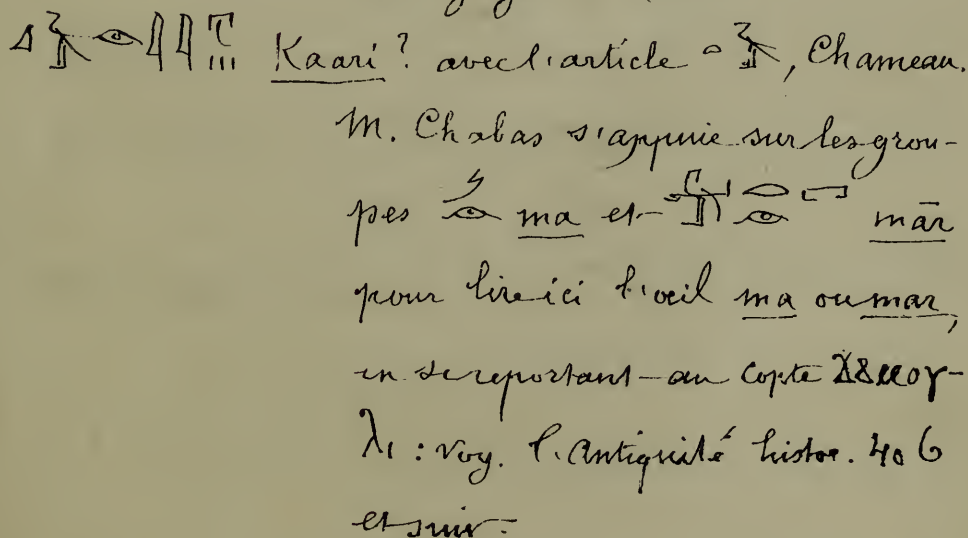 Kaari ? avec l'article , Chameau.
M. Chabas s'appuie sur les grou-
pes ma et mār
pour lire ici l'œil ma ou mar,
en se reportant au Copte ϪⲀⲙⲟⲩ-
ⲗⲓ : voy. l'Antiquité histor. 406
et suiv.